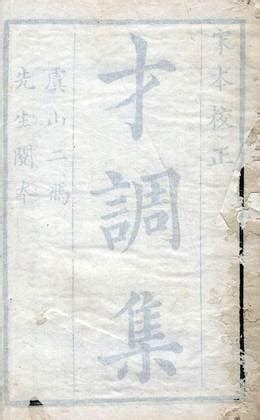 宋本校正
才調集
虞山二馮
先生閱本